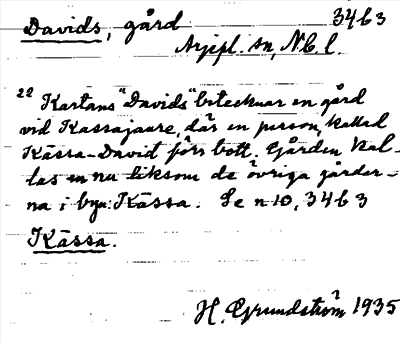 Davids, gård 34b3
Arjepl. sn, Nb. l.
22 Kartans "Davids" betecknar en gård
vid Kassajaure, där en person, kallad
Kāssa-David förr bott. Gården kal-
las nu liksom de övriga gårdar-
na i byn: Kāssa. Se n:o 10, 34b3
Kāssa.
H. Grundström 1935